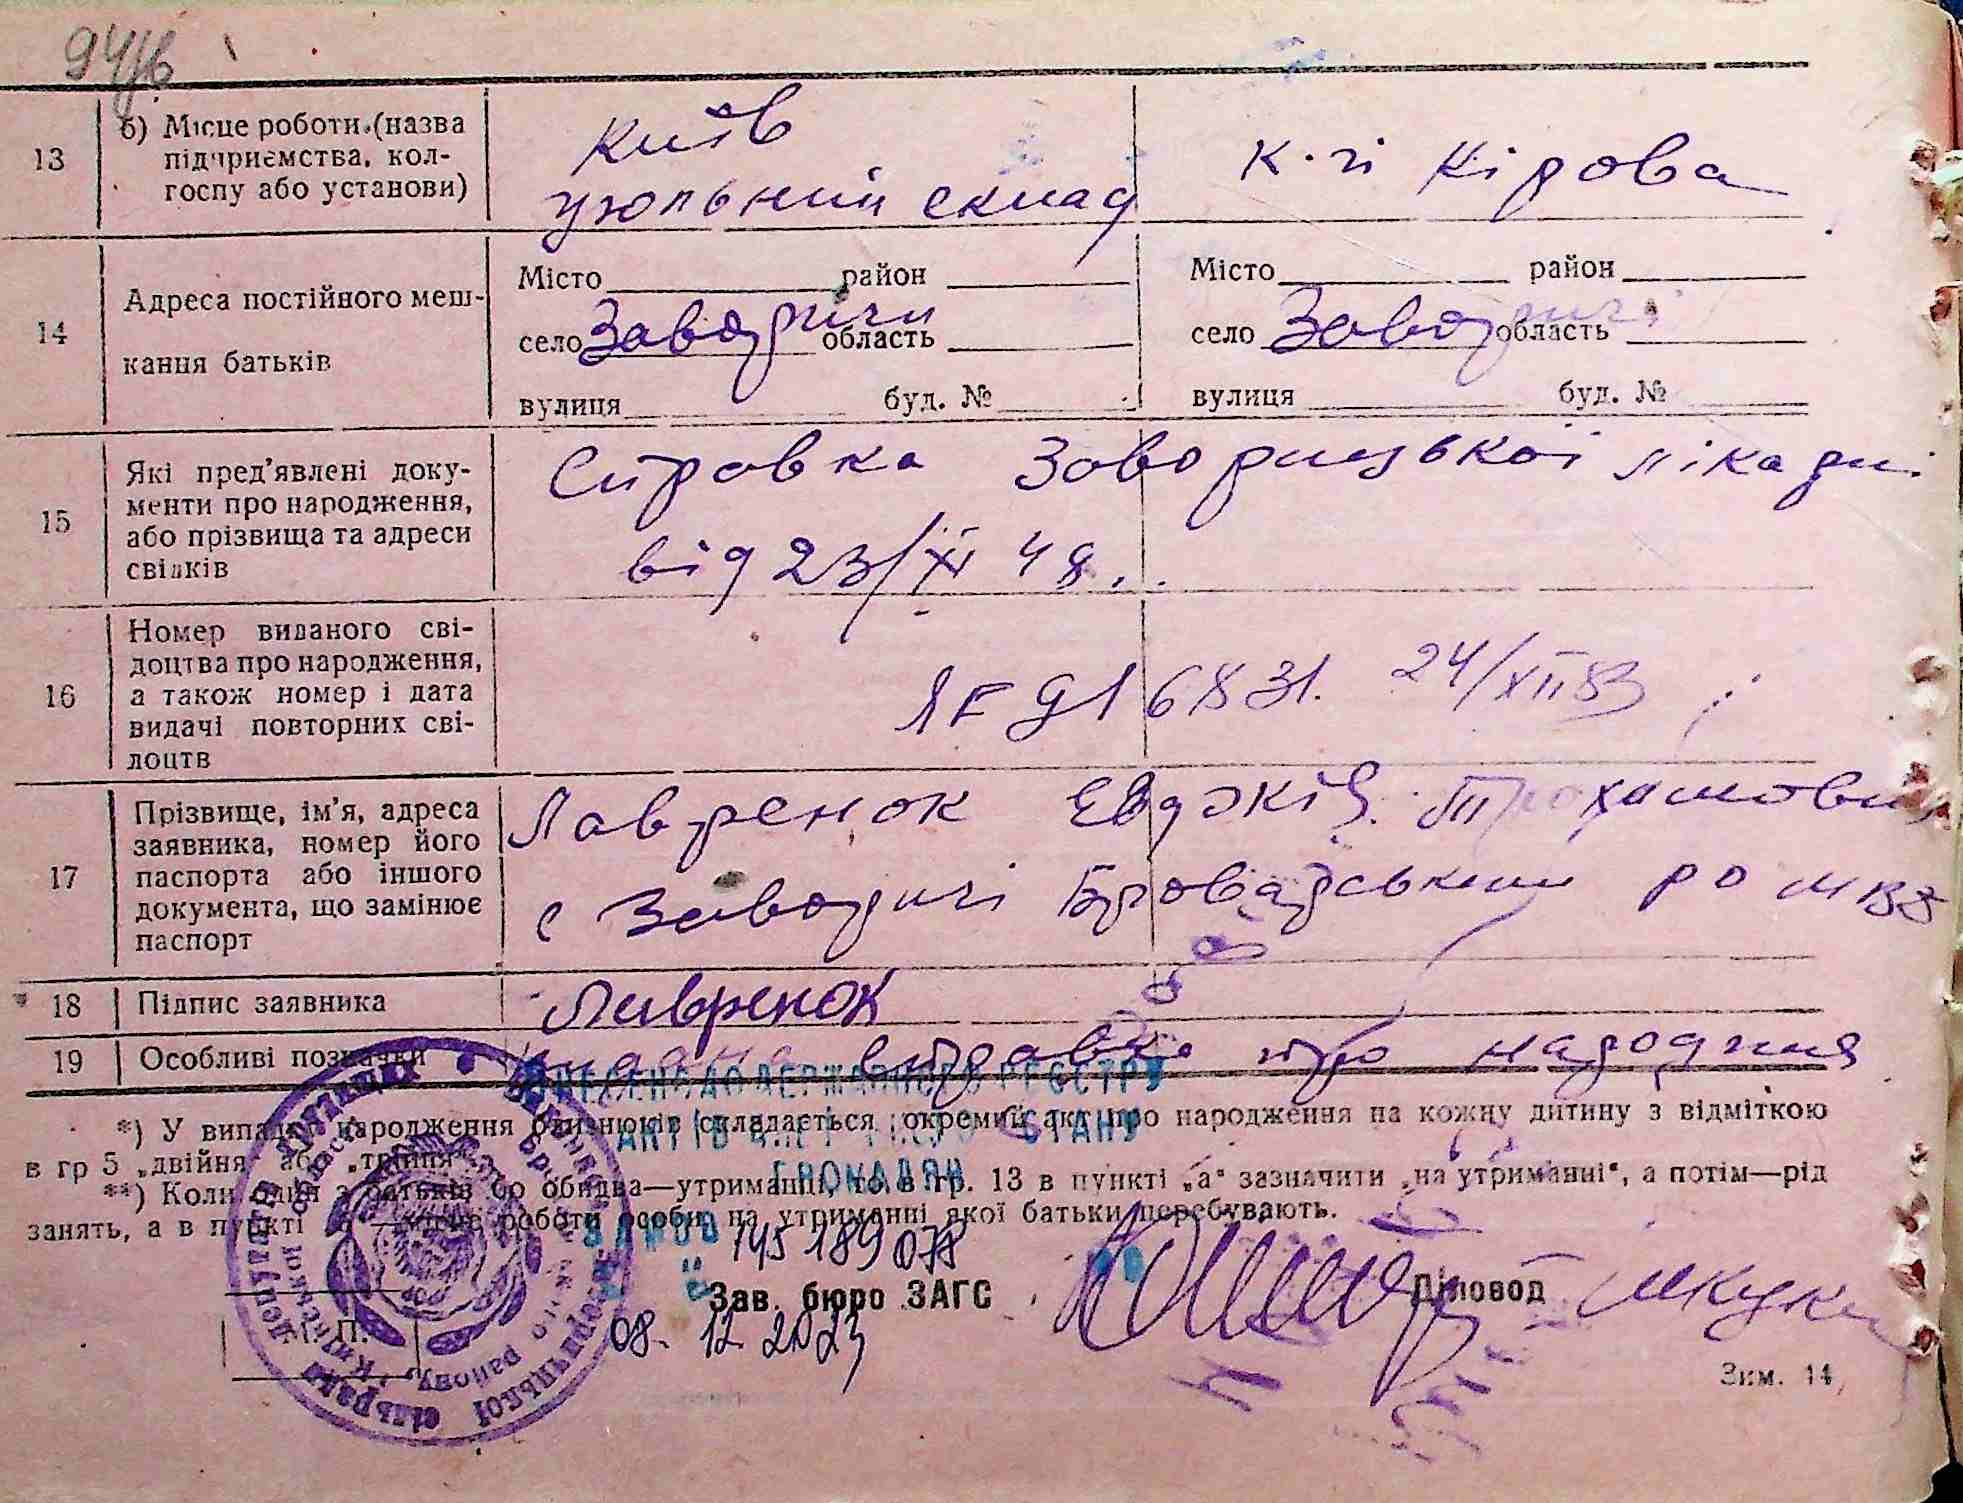 94/в
13
б) Місце роботи (назва
підприємства, кол-
госпу або установи)
Київ
угольний склад
к-гі Кірова
14
Адреса постійного меш-
кання батьків
Місто район
село Заворичи область
вулиця буд. №
Місто район
село Заворичі область
вулиця буд. №
15
Які пред'явлені доку-
менти про народження,
або прізвища та адреси
свідків
Справка Заворицької лікарні
від 23/XI 48.
16
Номер виданого сві-
доцтва про народження,
а також номер і дата
видачі повторних сві-
доцтв
916831. 24/XII 83
17
Прізвище, ім'я, адреса
заявника, номер його
паспорта або іншого
документа, що замінює
паспорт
Лавренок Евдокія
с Заворичі Броварським РО МВД
18
Підпис заявника
Лавренок
19
Особливі позначки
видана справка про народження
ВНЕСЕНО ДО ДЕРЖАВНОГО РЕЄСТРУ
АКТІВ ЦИВІЛЬНОГО СТАНУ
ГРОМАДЯН
*) У випадку народження близнюків складається окремий акт про народження на кожну дитину з відміткою
в гр 5 „двійня" або „трійня".
**) Коли один з батьків бо обидва—утриманці, то в гр. 13 в пункті „а" зазначити „на утриманні", а потім—рід
занять, а в пункті місце роботи особи, на утриманні якої батьки перебувають.
145189078
Зав. бюро ЗАГС
Діловод
08. 12. 2023
М. П.
Зим. 14